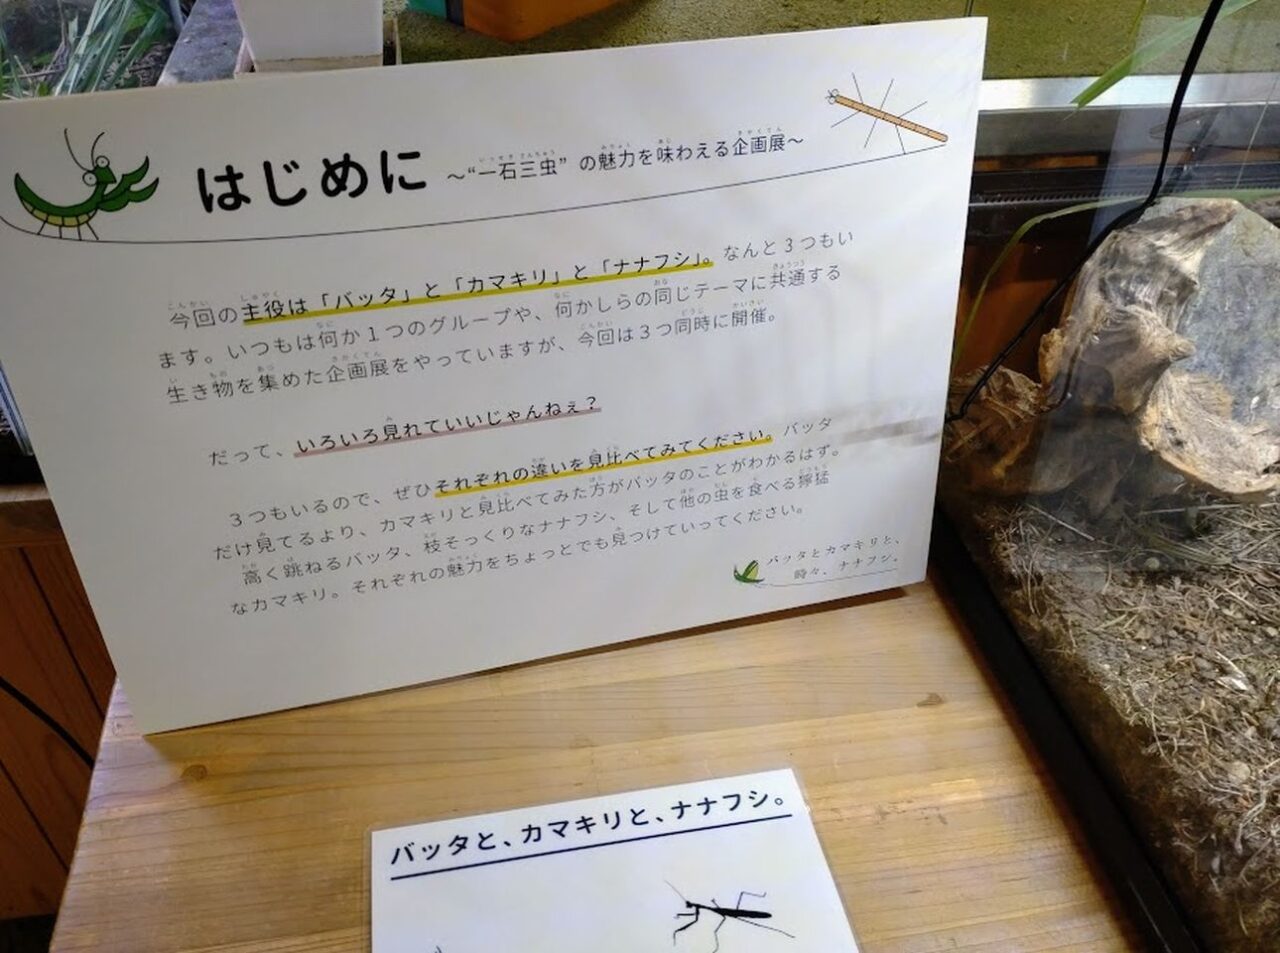 はじめに ～“一石三虫” の魅力を味わえる企画展～
今回の主役は「バッタ」と「カマキリ」と「ナナフシ」。なんと3つもい
ます。いつもは何か1つのグループや、何かしらの同じテーマに共通する
生き物を集めた企画展をやっていますが、今回は3つ同時に開催。
だって、いろいろ見れていいじゃんねぇ？
3つもいるので、ぜひそれぞれの違いを見比べてみてください。バッタ
だけ見てるより、カマキリと見比べてみた方がバッタのことがわかるはず。
高く跳ねるバッタ、枝そっくりなナナフシ、そして他の虫を食べる獰猛
なカマキリ。それぞれの魅力をちょっとでも見つけていってください。
バッタとカマキリと、
時々、ナナフシ。
バッタと、カマキリと、ナナフシ。